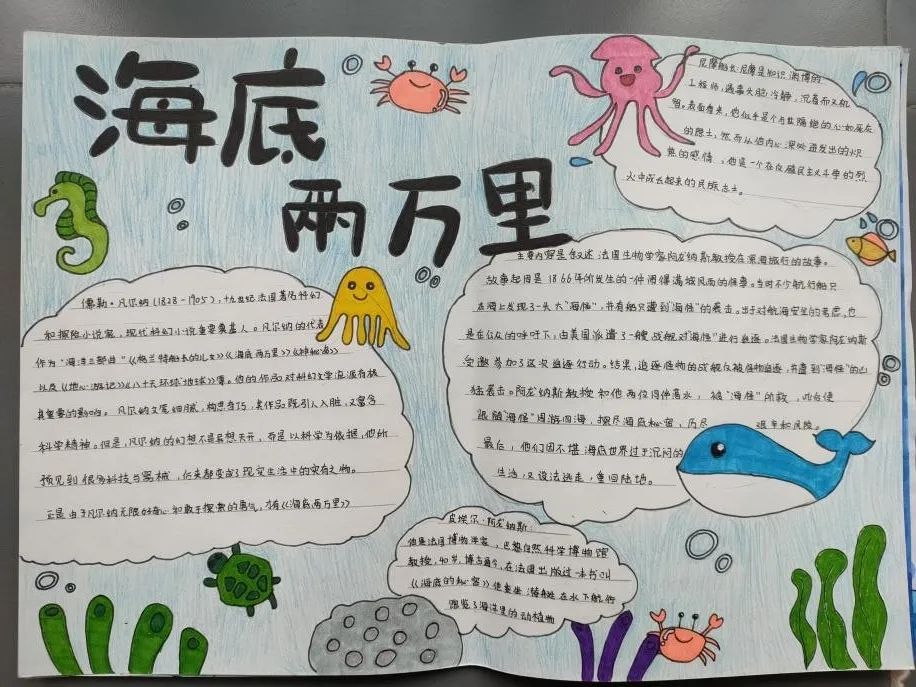 海底
两万里
尼摩船长:尼摩是知识渊博的
工程师,遇事大胆冷静,沉着而又机
智。表面看来,他似乎是个与世隔绝的心如死灰
的隐士,然而从他内心深处迸发出的炽
热的感情,他是一个在反殖民主义斗争的烈
火中成长起来的民族志士。
儒勒·凡尔纳(1828-1905),十九世纪法国著名科幻
和探险小说家,现代科幻小说重要奠基人。凡尔纳的代表
作为"海洋三部曲"《格兰特船长的儿女》《海底两万里》《神秘岛》
以及《地心游记》《八十天环球地球》等。他的作品对科幻文学流派有极
其重要的影响。凡尔纳文笔细腻,构思奇巧,其作品既引人入胜,又富含
科学精神。但是,凡尔纳的幻想不是异想天开,而是以科学为依据,他所
预见到很多科技与器械,后来都变成了现实生活中的实有之物。
正是由于凡尔纳无限好奇心和敢于探索的勇气,才有《海底两万里》
主要内容是叙述法国生物学家阿龙纳斯教授在深海旅行的故事。
故事起因是1866年所发生的一件闹得满城风雨的怪事。当时不少航行船只
在海上发现了一头大"海怪",并有船只遭到"海怪"的袭击。出于对航海安全的考虑,也
是在公众的呼吁下,由美国派遣了一艘战舰对"海怪"进行追逐。法国生物学家阿龙纳斯
受邀参加了这次追逐行动。结果,追逐怪物的战舰反被怪物追逐,并遭到"海怪"的
猛袭击。阿龙纳斯教授和他两位同伴落水,被"海怪"所救,
跟随"海怪"周游四海,探尽海底秘密,历尽艰辛和风险。
最后,他们因不堪海底世界过于沉闷的
生活,又设法逃走,重回陆地。
皮埃尔·阿龙纳斯:
他是法国博物学家,巴黎自然科学博物馆
教授,40岁,博古通今,在法国出版过一本书叫
《海底的秘密》他乘坐潜艇在水下航行
饱览了海洋里的动植物